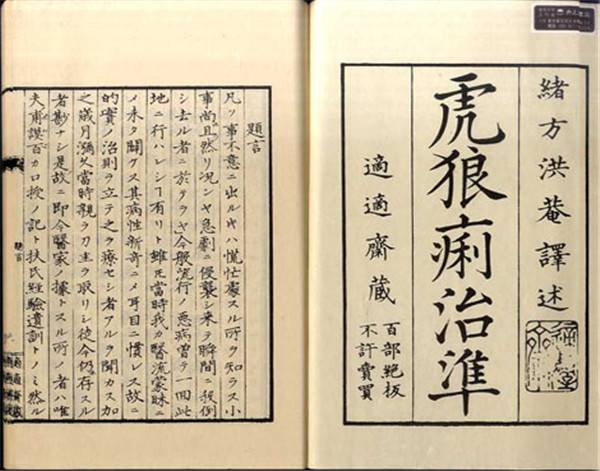 緒方洪菴譯述
虎狼痢治準
適適齋蔵
百部絶板
不許賣買
題言
凡ソ事不意ニ出ルヤハ慌忙處スル所ヲ知ラス小
事尚且然リ况ンヤ急劇ニ侵襲シ来テ瞬間ニ殺倒
シ去ル者ニ於テヲヤ今般流行ノ悪病曽テ一回此
地ニ行ハレシヿ有リト雖モ當時我カ醫流蒙昧ニ
メ未タ開ケス其病性新奇ニメ耳目ニ慣レス故ニ
的實ノ治則ヲ立テ之ヲ療セシ者アルヲ聞カス加
之歳月瀰久當時親ラ刀圭ヲ取リシ徒今仍存スル
者尠ナシ是故ニ即今醫家ノ據トスル所ノ者ハ唯
夫甫謨百カ口授ノ記ト扶氏經驗遺訓トノミ然ル
題言